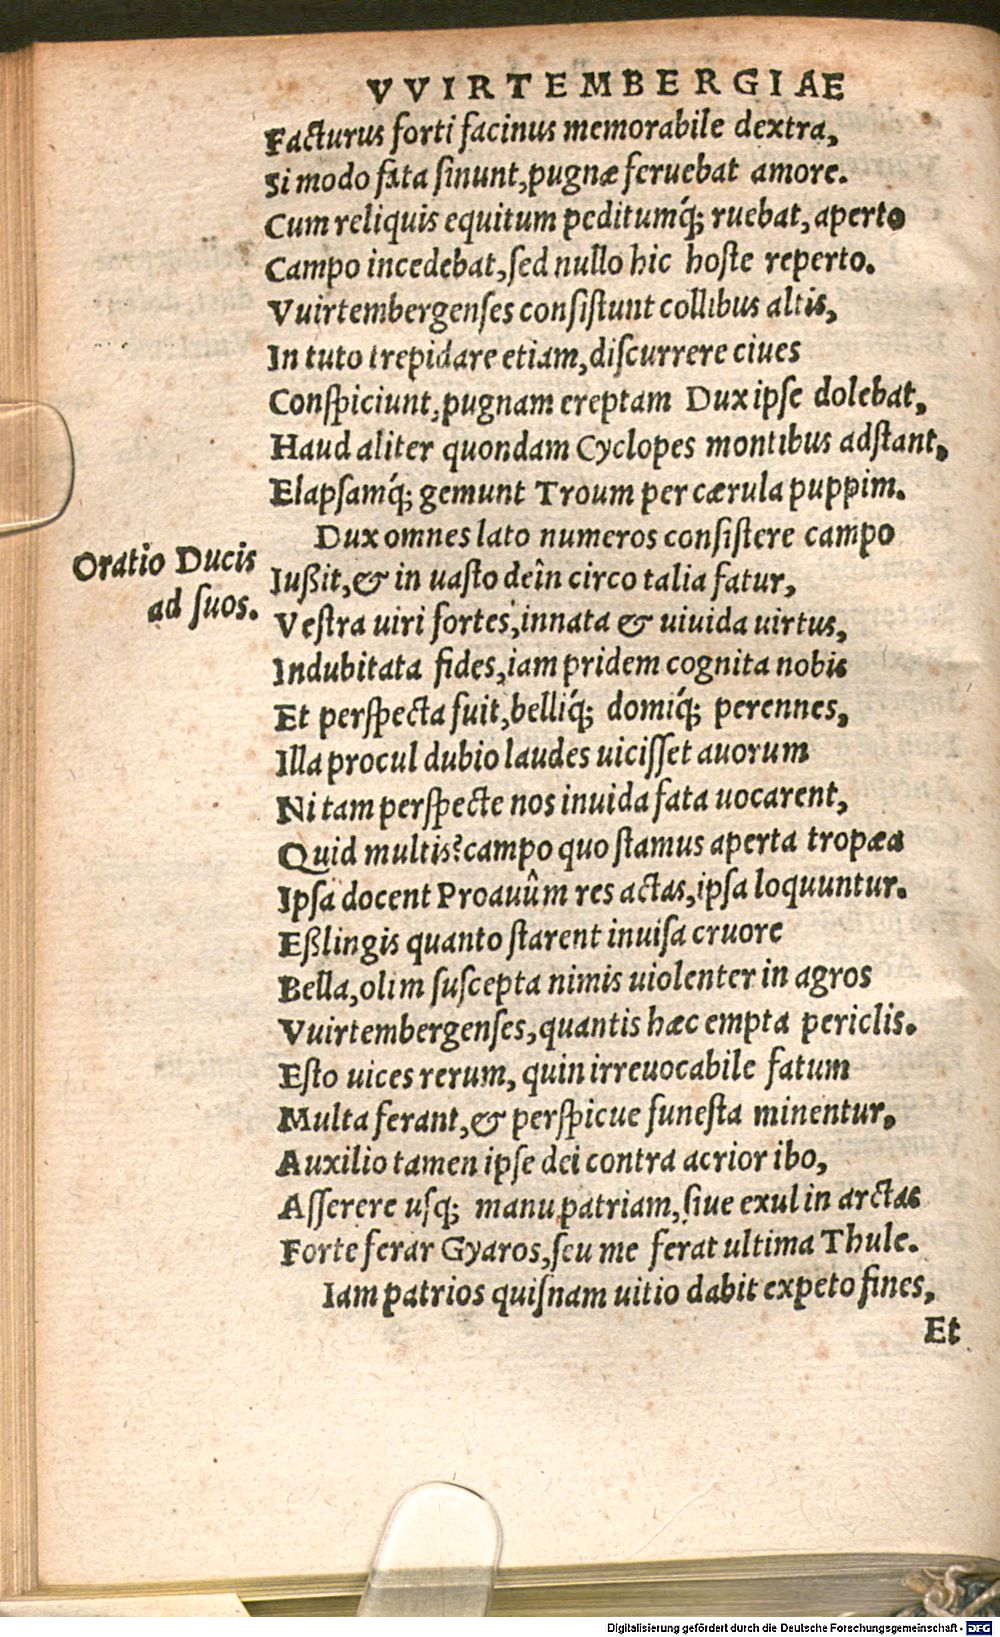 VVIRTEMBERGIAE
Facturus forti facinus memorabile dextra,
Si modo fata ſinunt, pugnæ feruebat amore.
Cum reliquis equitum peditumq́; ruebat, aperto
Campo incedebat, ſed nullo hic hoſte reperto.
Vuirtembergenſes conſiſtunt collibus altis,
In tuto trepidare etiam, diſcurrere ciues
Conſpiciunt, pugnam ereptam Dux ipſe dolebat,
Haud aliter quondam Cyclopes montibus adſtant,
Elapſamq́; gemunt Troum per cærula puppim.
Dux omnes lato numeros conſiſtere campo
Oratio Ducis
ad ſuos.
Iußit, & in uaſto deîn circo talia fatur,
Veſtra uiri fortes, innata & uiuida uirtus,
Indubitata fides, iam pridem cognita nobis
Et perſpecta fuit, belliq́; domiq́; perennes,
Illa procul dubio laudes uiciſſet auorum
Ni tam perſpecte nos inuida fata uocarent,
Quid multis? campo quo ſtamus aperta tropæa
Ipſa docent Proauûm res actas, ipſa loquuntur.
Eßlingis quanto ſtarent inuiſa cruore
Bella, olim ſuſcepta nimis uiolenter in agros
Vuirtembergenſes, quantis hæc empta periclis.
Eſto uices rerum, quin irreuocabile fatum
Multa ferant, & perſpicue funeſta minentur,
Auxilio tamen ipſe dei contra acrior ibo,
Aſſerere uſq; manu patriam, ſiue exul in arctas
Forte ferar Gyaros, ſeu me ferat ultima Thule.
Iam patrios quiſnam uitio dabit expeto fines,
Et
Digitalisierung gefördert durch die Deutsche Forschungsgemeinschaft - DFG